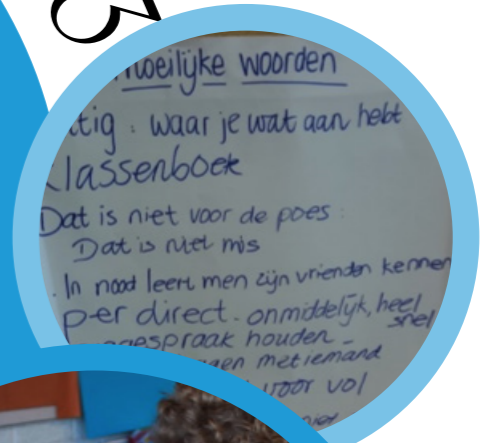 moeilijke woorden
ttig : waar je wat aan hebt
klassenboek
Dat is niet voor de poes :
Dat is niet mis
. In nood leert men zijn vrienden kennen
per direct - onmiddelijk, heel
snel
gespraak houden -
met iemand
voor vol